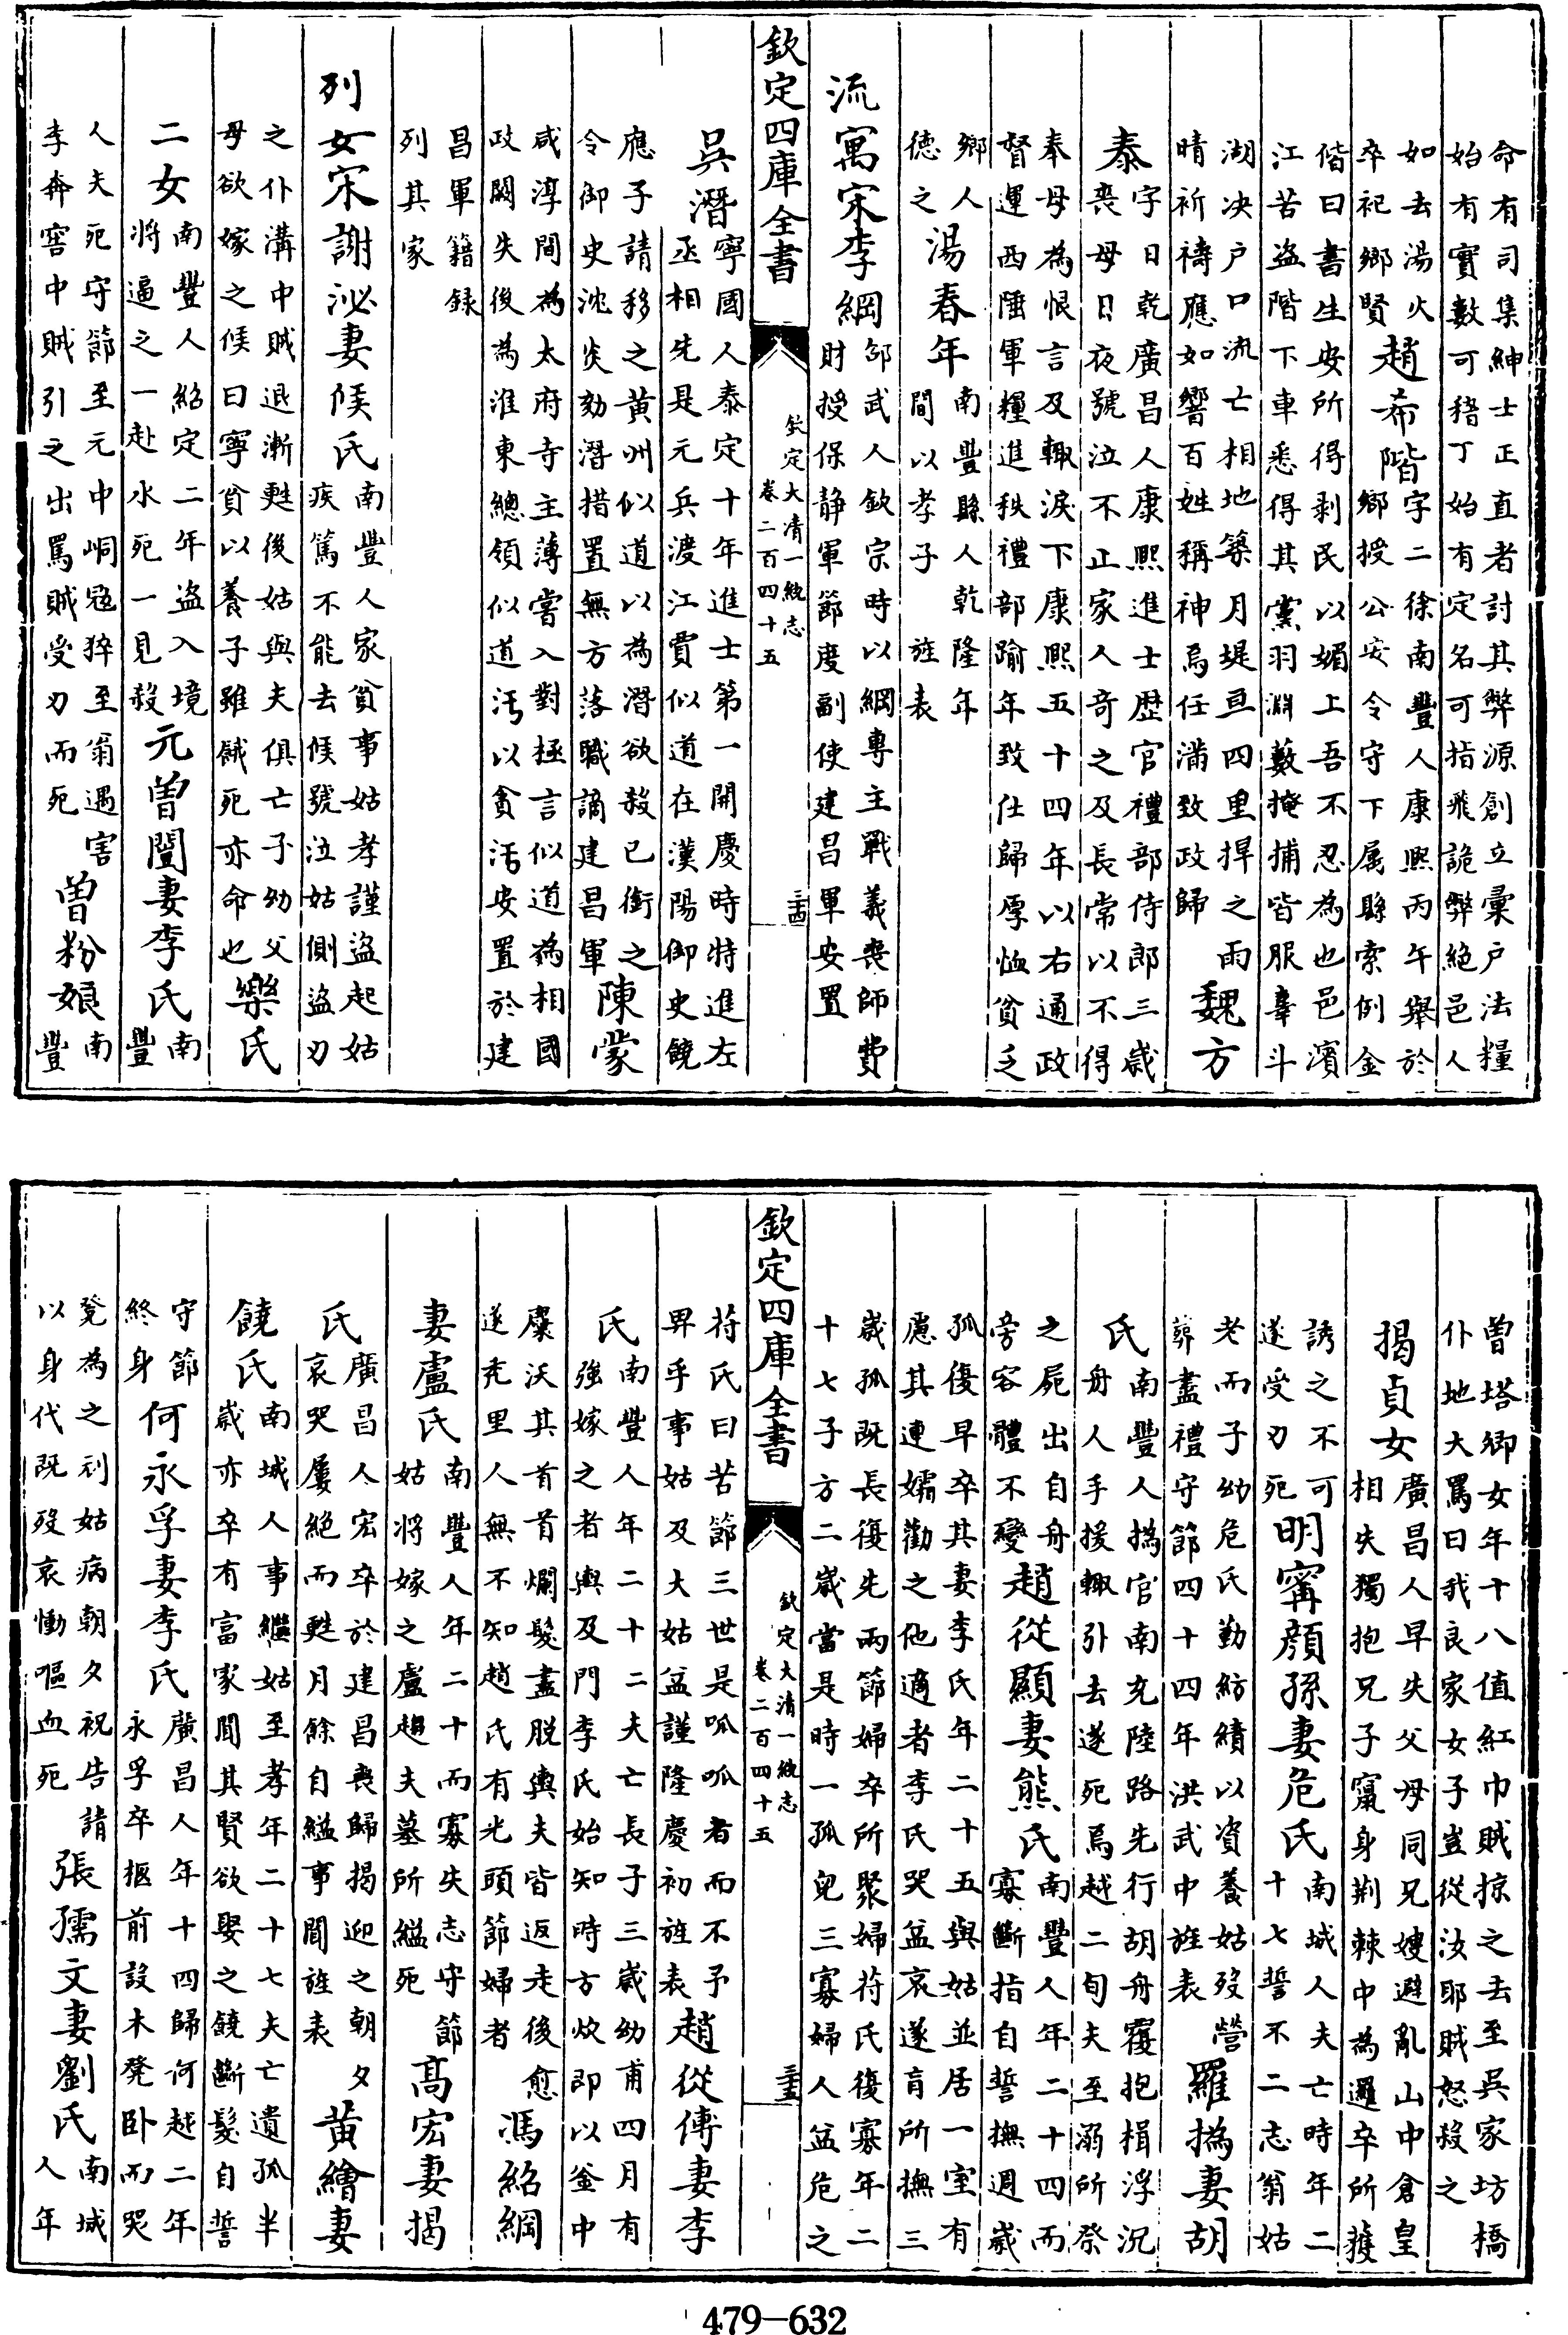 命有司集紳士正直者討其弊源創立彚戶法糧
始有實數可稽丁始有定名可指飛詭弊絕邑人
如去湯火卒祀鄉賢趙希階字二徐南豐人康熙丙午舉於鄉授公安令守下属縣索例金
偕曰書生安所得剥民以媚上吾不忍為也邑濵
江苦盗階下車悉得其黨羽淵藪掩捕皆服辜斗
湖决户口流亡相地築月堤亘四里捍之雨晴祈禱應如響百姓稱神焉任滿致政歸魏方
泰字日乾廣昌人康熙進士歴官禮部侍郎三歳喪母日夜號泣不止家人奇之及長常以不得
奉母為恨言及輒淚下康熙五十四年以右通政
督運西陲軍糧進秩禮部踰年致仕歸厚恤貧乏
鄉人德之湯春年南豐縣人乾隆年間以孝子旌表
流寓宋李綱邵武人欽宗時以綱專主戰義喪師費財授保静軍節度副使建昌軍安置
欽定四庫全書
欽定大清一統志
卷二百四十五
三十四
吳潛寧國人泰定十年進士第一開慶時特進左丞相先是元兵渡江賈似道在漢陽御史饒
應子請移之黄州似道以為潛欲殺已銜之令御史沈炎劾潛措置無方落職謫建昌軍陳蒙
咸淳間為太府寺主薄嘗入對極言似道為相國
政闕失後為淮東總領似道汚以貪汚安置於建
昌軍籍録
列其家
列女宋謝泌妻候氏南豐人家貧事姑孝謹盜起姑疾篤不能去候號泣姑側盜刃
之仆溝中賊退漸甦後姑與夫俱亡子幼父母欲嫁之候曰寧貧以養子雖餓死亦命也樂氏
二女南豐人紹定二年盜入境將逼之一赴水死一見殺元曾闓妻李氏南豐
人夫死守節至元中峒冦猝至翁遇害李奔窖中賊引之出罵賊受刃而死曾粉娘南豐
曾塔鄉女年十八值紅巾賊掠之去至吳家坊橋
仆地大罵曰我良家女子豈從汝耶賊怒殺之
揭貞女廣昌人早失父母同兄嫂避亂山中倉皇相失獨抱兄子竄身荆棘中為邏卒所獲
誘之不可遂受刃死明甯顔孫妻危氏南城人夫亡時年二十七誓不二志翁姑
老而子幼危氏勤紡績以資養姑歿營葬盡禮守節四十四年洪武中旌表羅撝妻胡
氏南豐人撝官南充陸路先行胡舟覆抱楫浮況舟人手援輒引去遂死焉越二旬夫至溺所祭
之屍出自舟旁容體不變趙從顯妻熊氏南豐人年二十四而寡斷指自誓撫週歲
孤復早卒其妻李氏年二十五與姑並居一室有
慮其連孀勸之他適者李氏哭益哀遂肓所撫三
歲孤既長復先兩節婦卒所聚婦苻氏復寡年二
十七子方二歲當是時一孤皃三寡婦人益危之
欽定四庫全書
欽定大清一統志
卷二百四十五
三十五
苻氏曰苦節三世是呱呱者而不予畀乎事姑及大姑益謹隆慶初旌表趙從傅妻李
氏南豐人年二十二夫亡長子三歲幼甫四月有強嫁之者輿及門李氏始知時方炊即以釜中
糜沃其首首爛髮盡脱輿夫皆返走後愈遂秃里人無不知趙氏有光頭節婦者馮紹綱
妻盧氏南豐人年二十而寡失志守節姑將嫁之盧趨夫墓所縊死高宏妻揭
氏廣昌人宏卒於建昌喪歸揭迎之朝夕哀哭屢絕而甦月餘自縊事聞旌表黄繪妻
饒氏南城人事繼姑至孝年二十七夫亡遺孤半歲亦卒有富家聞其賢欲娶之饒斷髮自誓
守節終身何永孚妻李氏廣昌人年十四歸何越二年永孚卒柩前設木凳卧而哭
凳為之刓姑病朝夕祝告請以身代既歿哀慟嘔血死張孺文妻劉氏南城人年
479-632